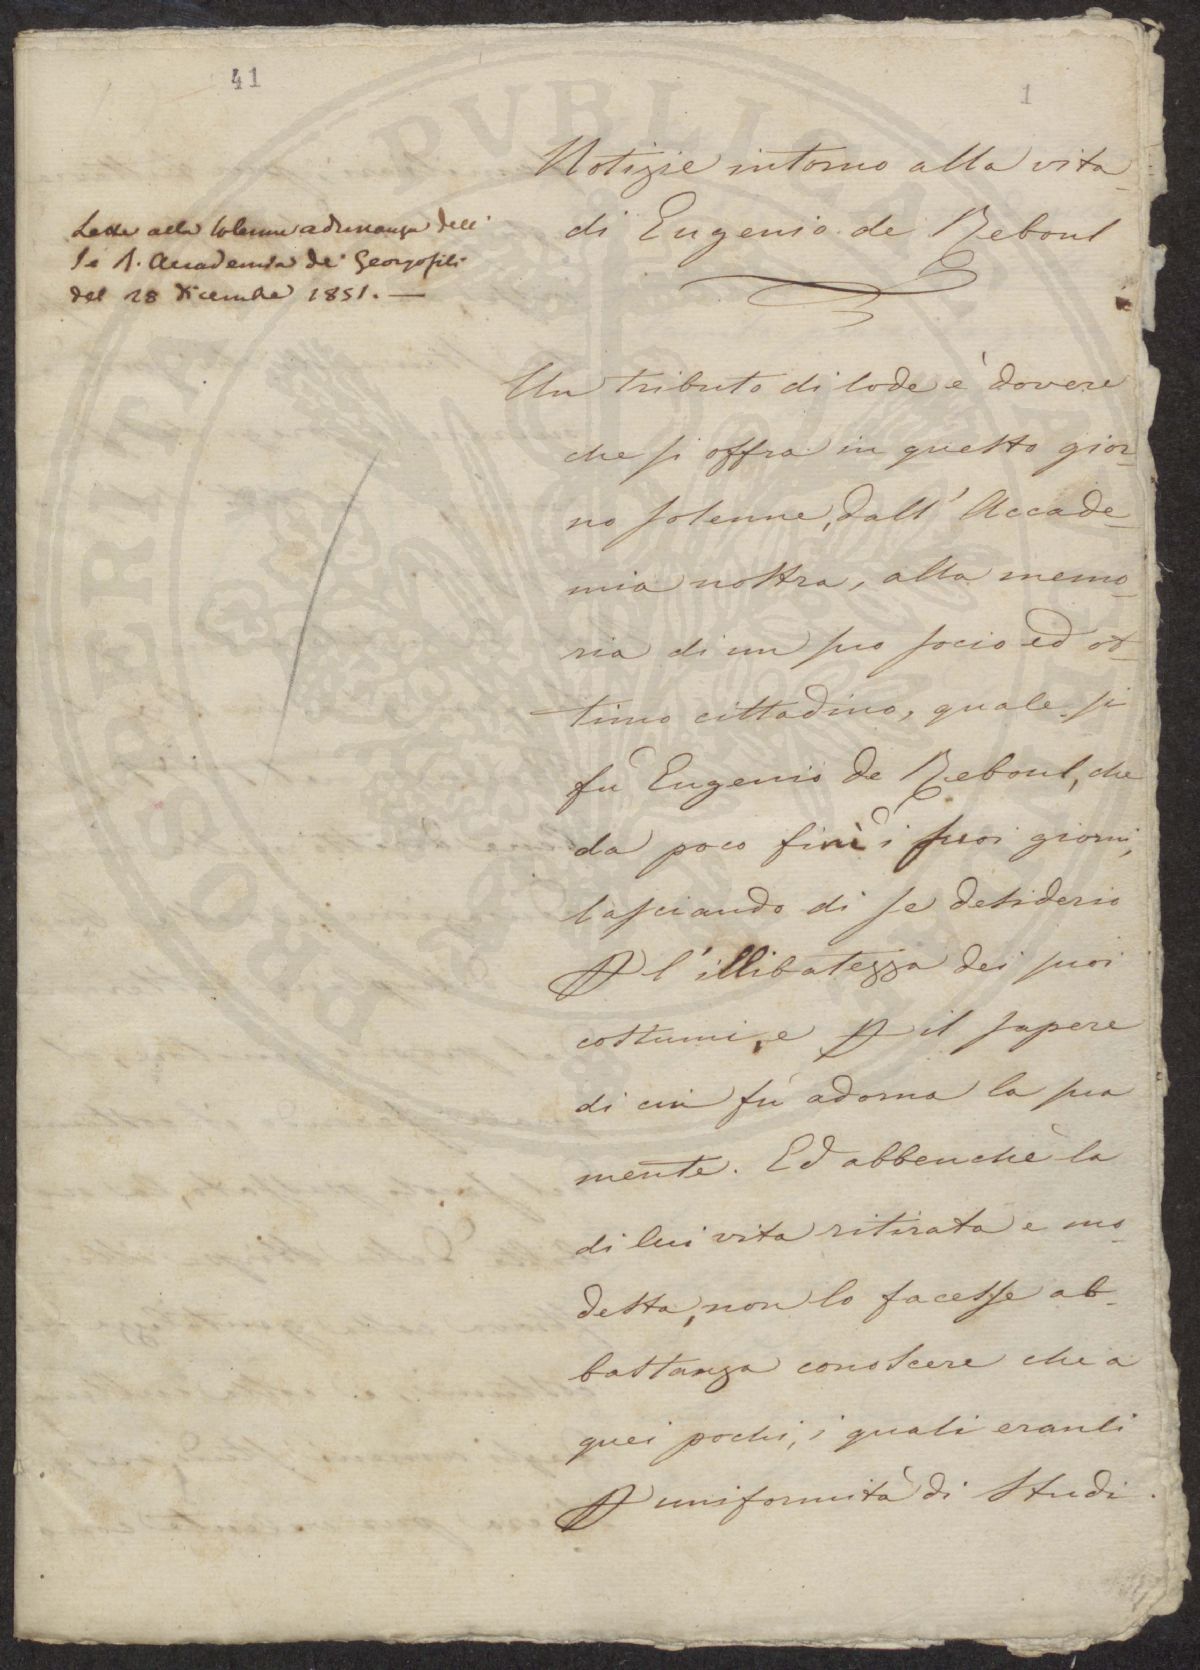 41
1
Notizie intorno alla vita
di Eugenio de Reboul
Lette alla solenne adunanza dell'
I. e R. Accademia de' Georgofili
del 28 Dicembre 1851. —
Un tributo di lode è dovere
che si offra in questo gior-
no solenne, dall' Accade-
mia nostra, alla memo-
ria di un suo socio ed ot-
timo cittadino, quale si
fu Eugenio de Reboul, che
da poco finì i suoi giorni,
lasciando di se desiderio
P l'illibatezza dei suoi
costumi, e P il sapere
di cui fù adorna la sua
mente. Ed abbenchè la
di lui vita ritirata e mo-
desta, non lo facesse ab-
bastanza conoscere che a
quei pochi, i quali eranli
P uniformità di studi
PROPRIETA PUBLICA